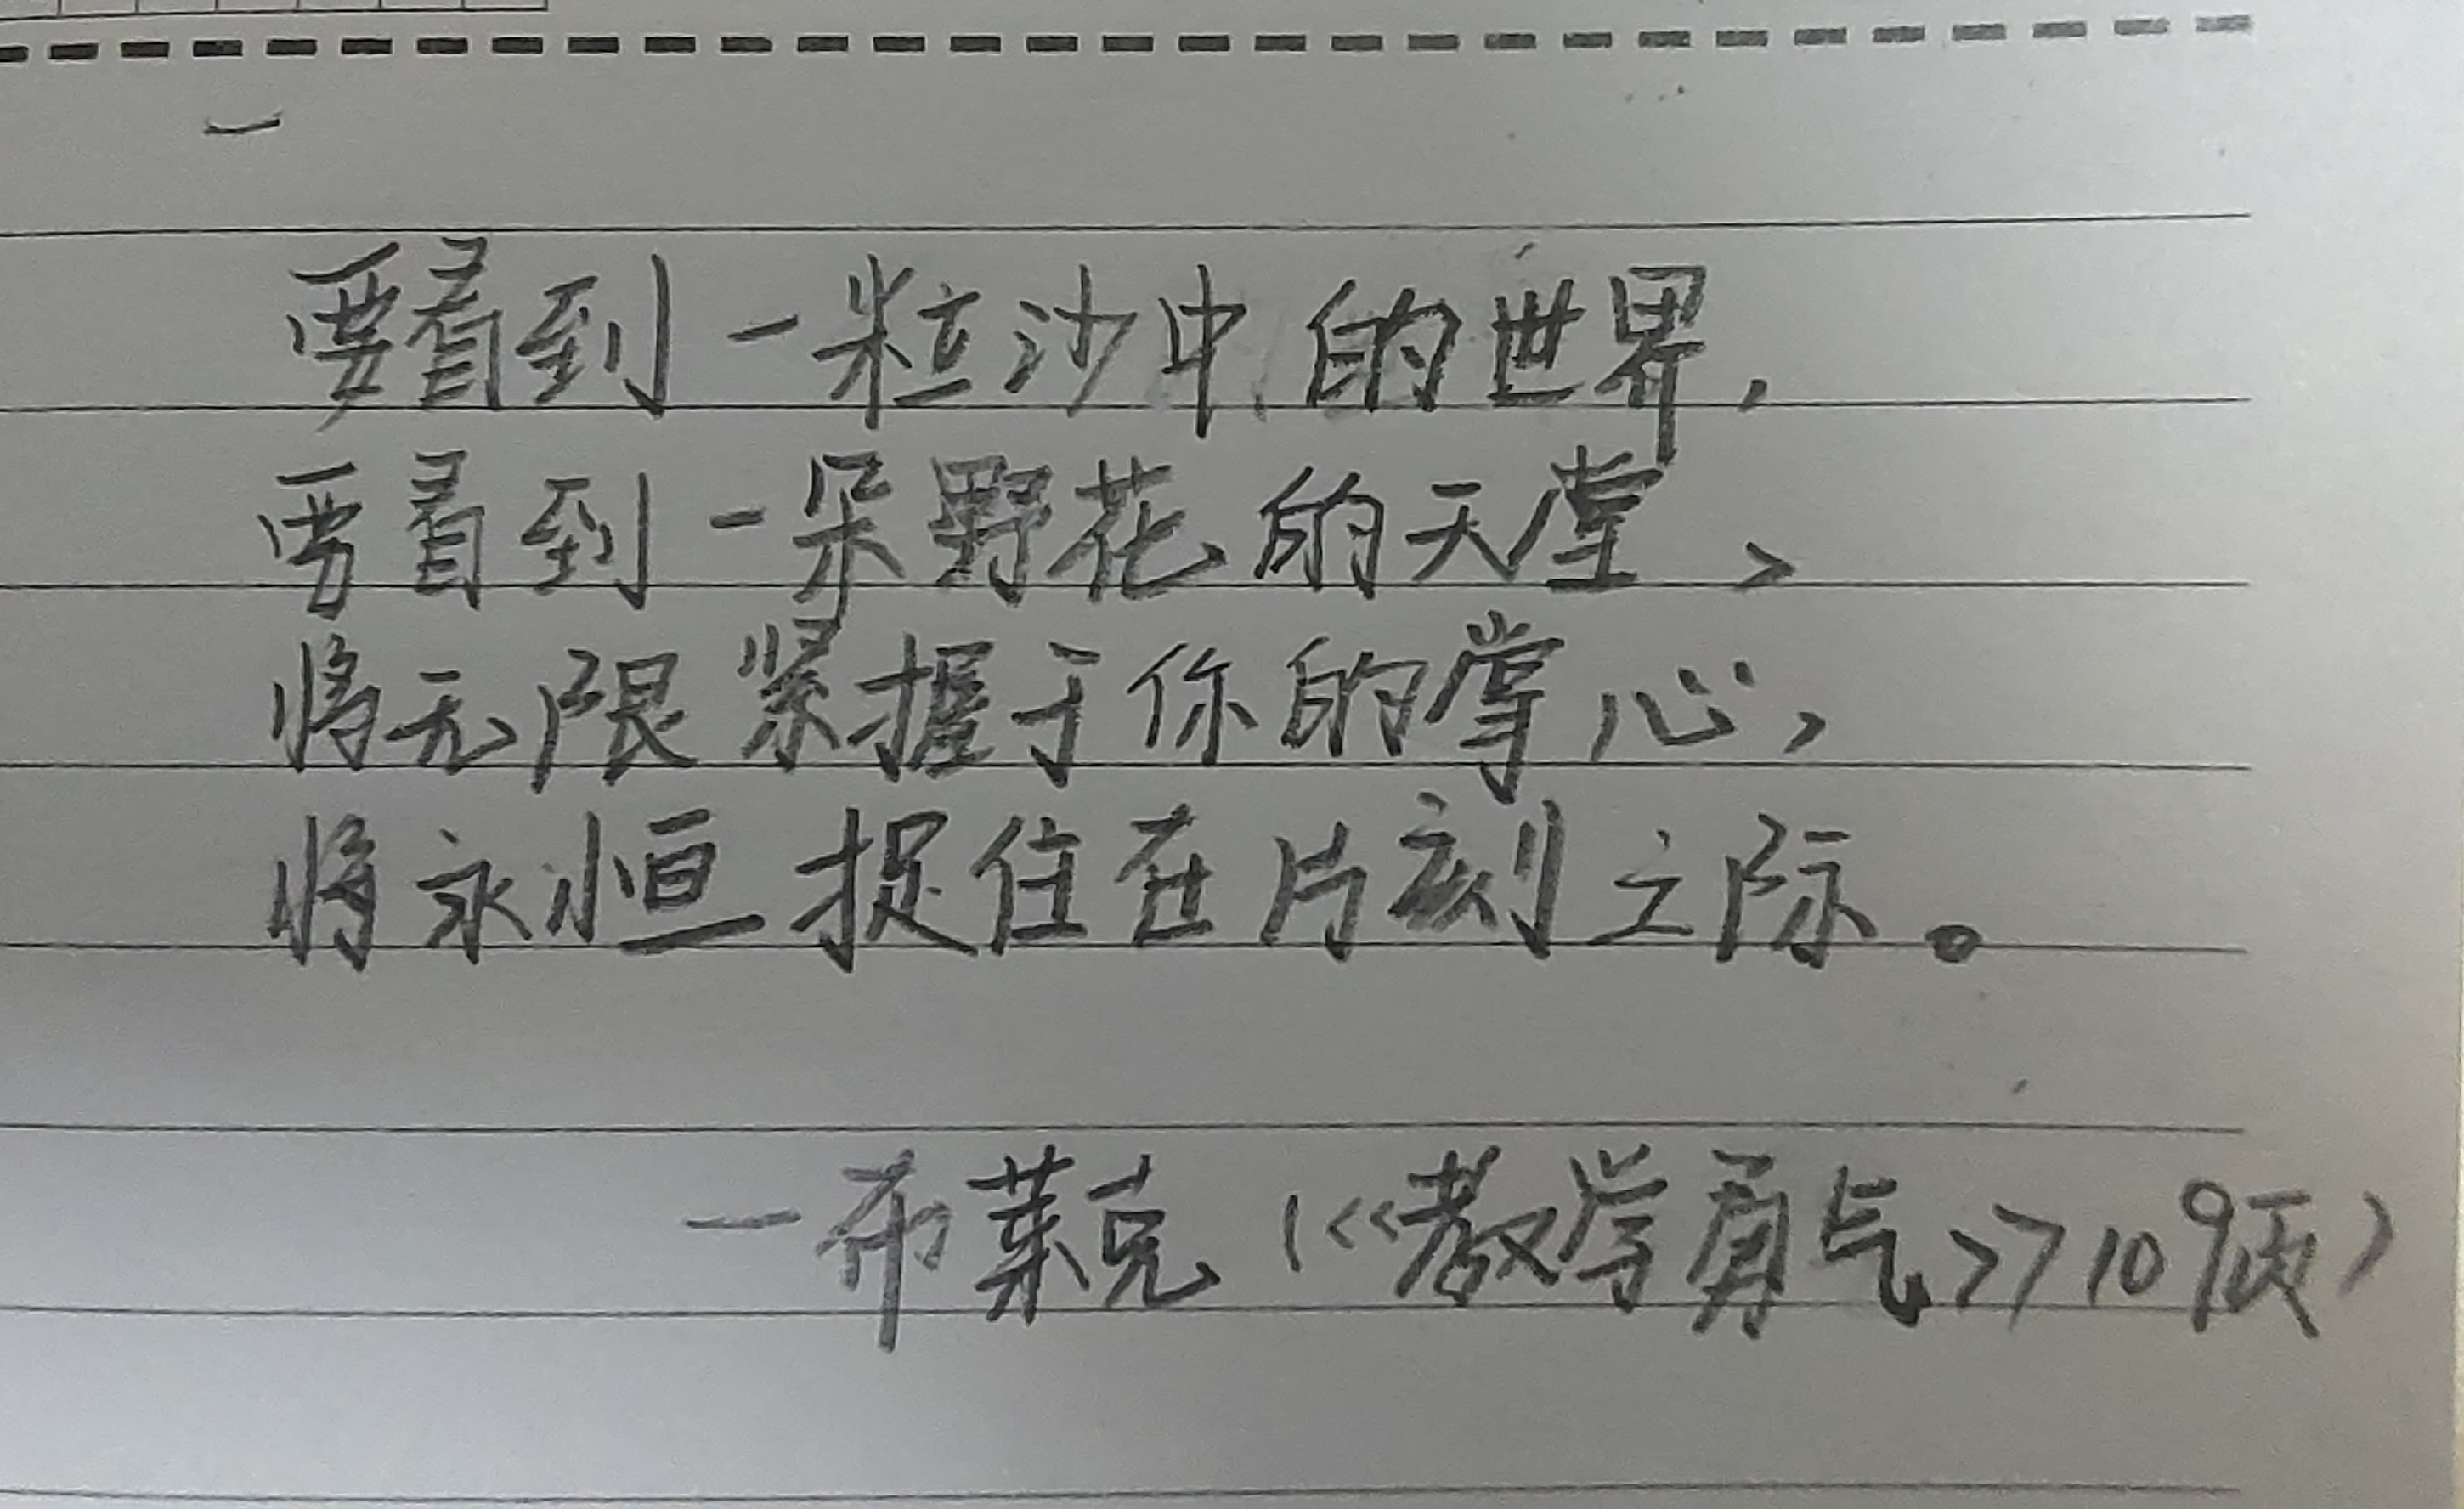 要看到一粒沙中的世界，
要看到一朵野花的天堂，
将无限紧握于你的掌心，
将永恒捉住在片刻之际。
一布莱克（《教学勇气》109页）